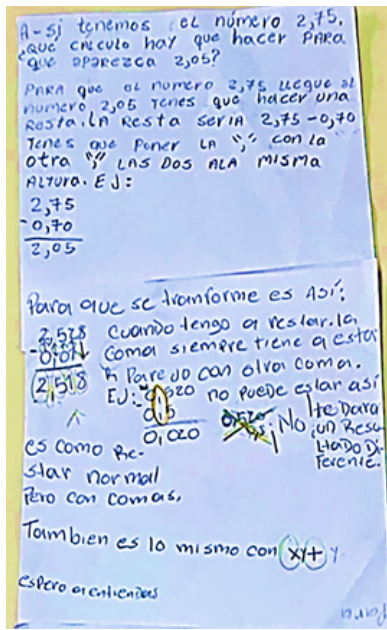 A-Si tenemos el número 2,75.
¿Qué cálculo hay que hacer PARA
que aparezca 2,05?
PARA que el numero 2,75 llegue al
numero 2,05 Tenes que hacer una
Resta. LA Resta seria 2,75-0,70
Tenes que Poner LA "," con la
otra "," LAS DOS A LA misma
ALTURA. EJ:
2,75
-0,70
2,05
Para que se tranforme es Así:
2,528 Cuando tengo a restar. la
-0,01 Coma siempre tiene a estar
2,518 Parejo con olra coma.
EJ: 0,520 no puede eslar así
-0,5 0,520 ¡No te Dara
0,020 0,5 un Resu
es como Re- ltado Di-
star normal ferente.
Pero con comas.
Tambien es lo mismo con x y +
espero a entiendas